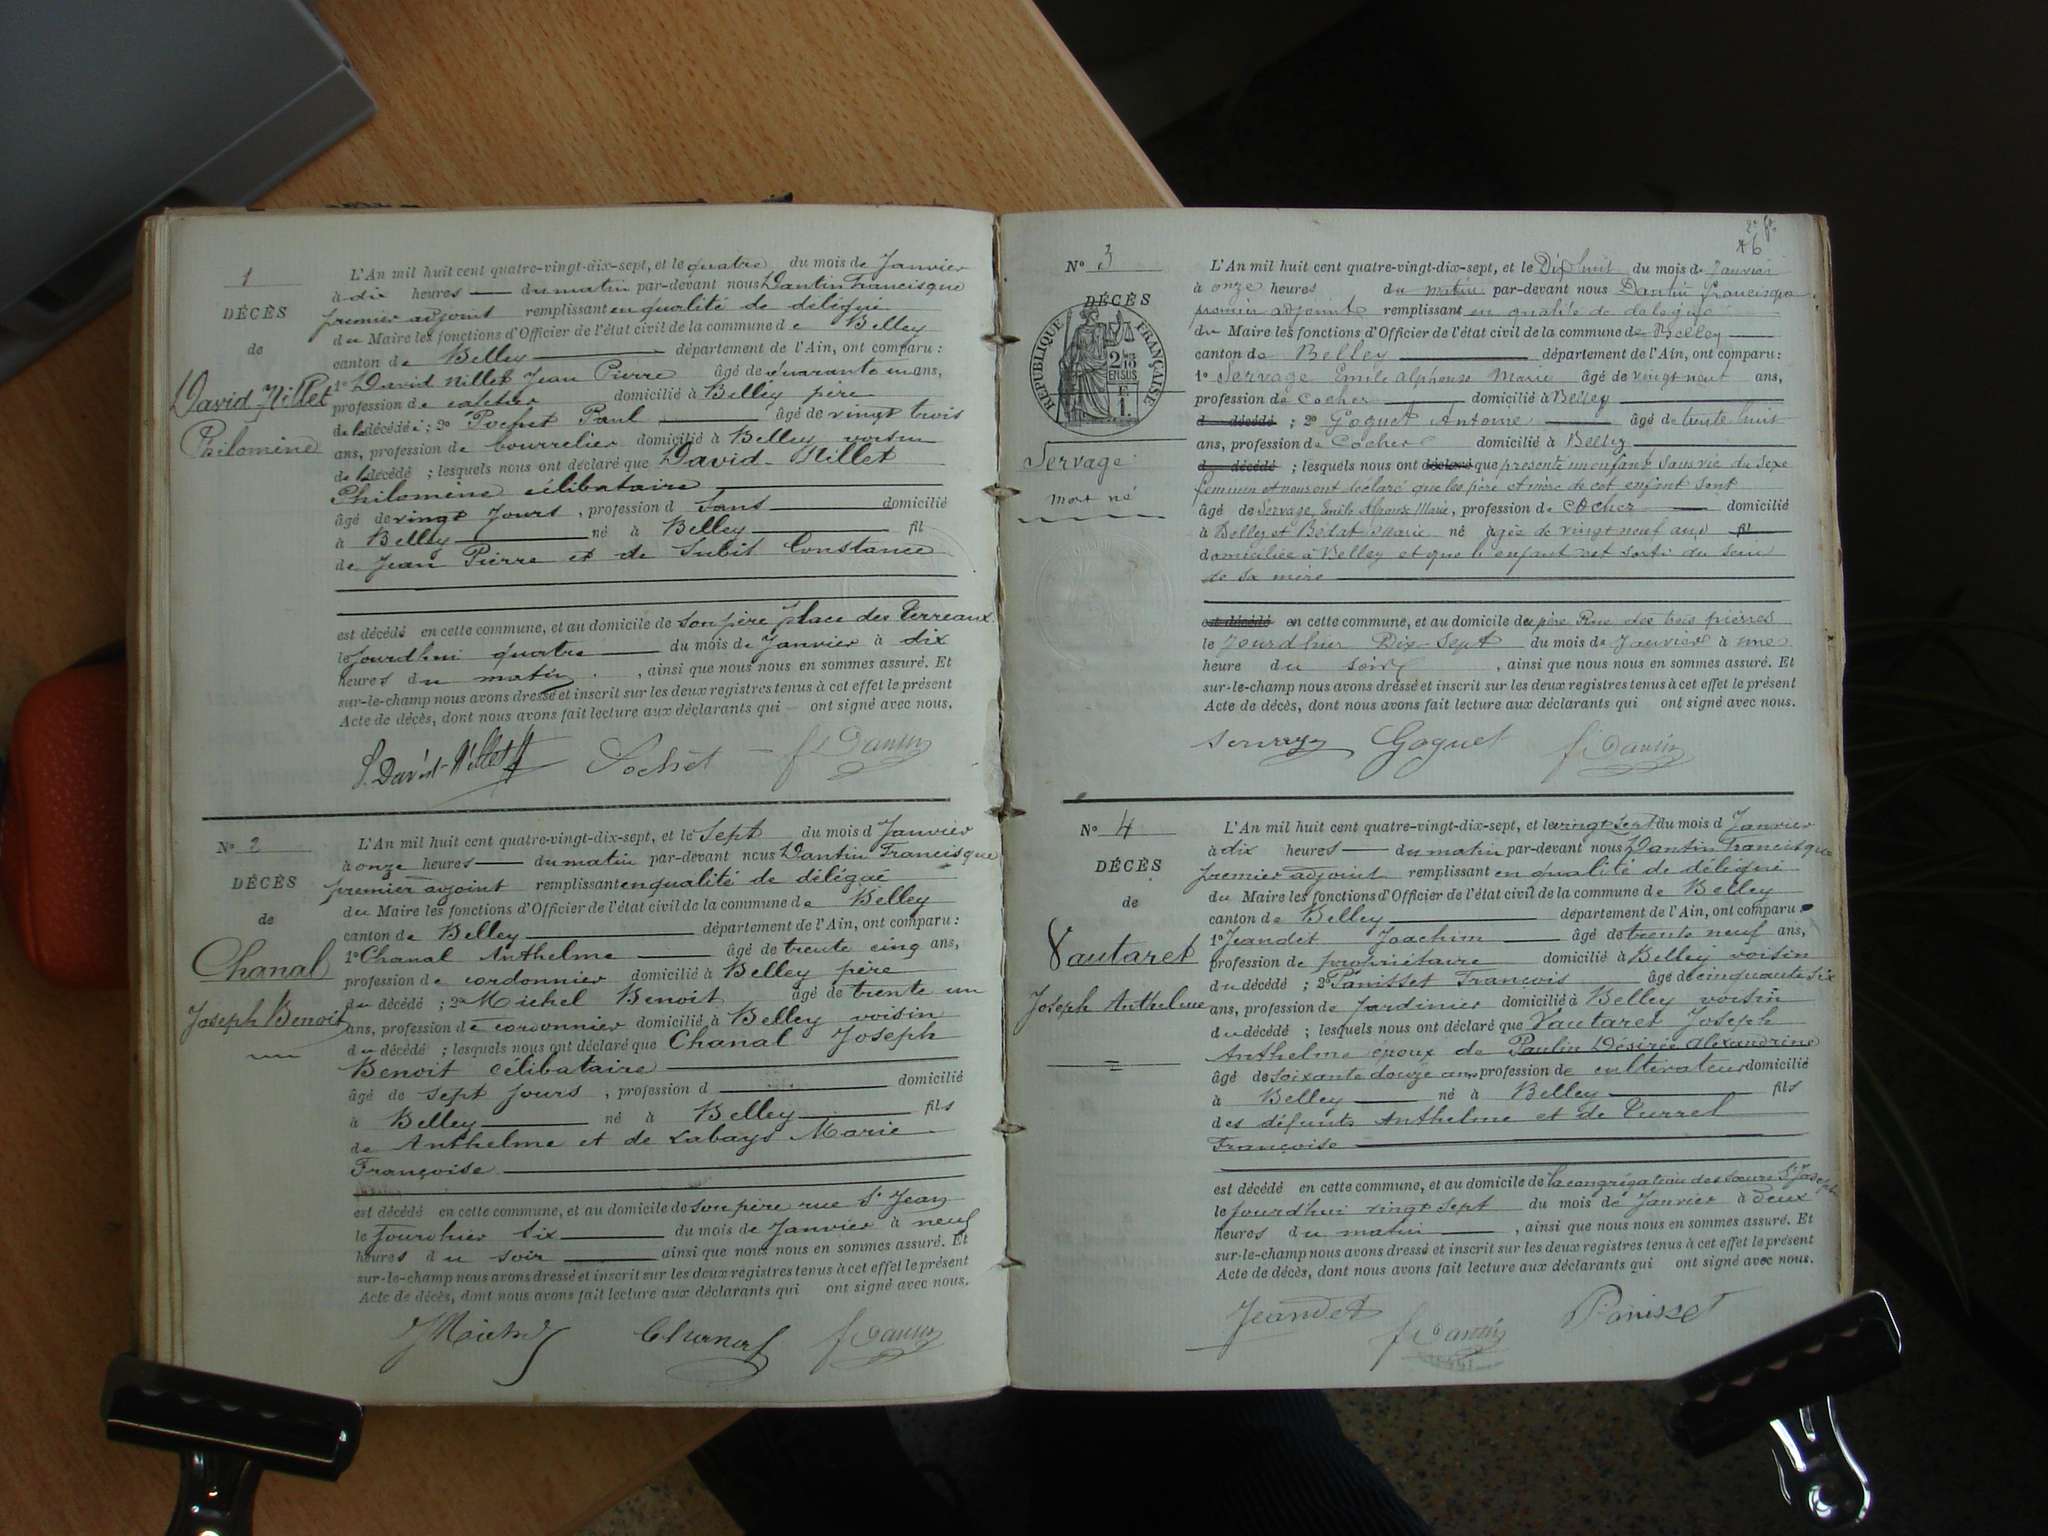 1
DÉCÈS
de
David Nillet
Philomène
L'An mil huit cent quatre-vingt-dix-sept, et le quatre du mois de Janvier
à dix heures du matin par-devant nous Dantin Francisque
premier adjoint remplissant en qualité de délégué
du Maire les fonctions d'Officier de l'état civil de la commune de Belley
canton de Belley département de l'Ain, ont comparu :
1º David Nillet Jean Pierre âgé de quarante un ans,
profession de cafetier domicilié à Belley père
de la décédée ; 2º Pochet Paul âgé de vingt trois
ans, profession de bourrelier domicilié à Belley voisin
de la décédé ; lesquels nous ont déclaré que David-Nillet
Philomène célibataire
âgé de vingt jours, profession d sans domicilié
à Belley né à Belley fil
de Jean Pierre et de Subit Constance
est décédé en cette commune, et au domicile de son père place des Terreaux
le jourdhui quatre du mois de Janvier à dix
heures du matin, ainsi que nous nous en sommes assuré. Et
sur-le-champ nous avons dressé et inscrit sur les deux registres tenus à cet effet le présent
Acte de décès, dont nous avons fait lecture aux déclarants qui ont signé avec nous.
David-Nillet Pochet f. Dantin
Nº 2
DÉCÈS
de
Chanal
Joseph Benoit
L'An mil huit cent quatre-vingt-dix-sept, et le sept du mois d Janvier
à onze heures du matin par-devant nous Dantin Francisque
premier adjoint remplissant en qualité de délégué
du Maire les fonctions d'Officier de l'état civil de la commune de Belley
canton de Belley département de l'Ain, ont comparu :
1º Chanal Anthelme âgé de trente cinq ans,
profession de cordonnier domicilié à Belley père
du décédé ; 2º Michel Benoit âgé de trente un
ans, profession de cordonnier domicilié à Belley voisin
du décédé ; lesquels nous ont déclaré que Chanal Joseph
Benoit célibataire
âgé de sept jours, profession d domicilié
à Belley né à Belley fils
de Anthelme et de Labays Marie
Françoise
est décédé en cette commune, et au domicile de son père rue St Jean
le jourdhier six du mois de Janvier à neuf
heures du soir ainsi que nous nous en sommes assuré. Et
sur-le-champ nous avons dressé et inscrit sur les deux registres tenus à cet effet le présent
Acte de décès, dont nous avons fait lecture aux déclarants qui ont signé avec nous.
Michel Chanal f. Dantin
2e fo
Nº 3
DÉCÈS
RÉPUBLIQUE FRANÇAISE
2/10 EN SUS
Servage
mort né
L'An mil huit cent quatre-vingt-dix-sept, et le Dix huit du mois de Janvier
à onze heures du matin par-devant nous Dantin Francisque
premier adjoint remplissant en qualité de délégué
du Maire les fonctions d'Officier de l'état civil de la commune de Belley
canton de Belley département de l'Ain, ont comparu :
1º Servage Emile Alphonse Marie âgé de vingt neuf ans,
profession de Cocher domicilié à Belley
d décédé ; 2º Goguet Antoine âgé de trente huit
ans, profession de Cocher domicilié à Belley
d décédé ; lesquels nous ont déclaré que présenté un enfant sans vie du sexe
féminin et nous ont déclaré que les père et mère de cet enfant sont
âgé de Servage Emile Alphonse Marie, profession de Cocher domicilié
à Belley et Bétat Marie né âgée de vingt neuf ans fil
domiciliée à Belley et que l'enfant est sorti du sein
de sa mère
est décédé en cette commune, et au domicile du père Rue des trois pierres
le Jourdhier Dix-Sept du mois de Janvier à une
heure du soir, ainsi que nous nous en sommes assuré. Et
sur-le-champ nous avons dressé et inscrit sur les deux registres tenus à cet effet le présent
Acte de décès, dont nous avons fait lecture aux déclarants qui ont signé avec nous.
Servage Goguet f. Dantin
Nº 4
DÉCÈS
de
Vautaret
Joseph Anthelme
L'An mil huit cent quatre-vingt-dix-sept, et le vingt sept du mois d Janvier
à dix heures du matin par-devant nous Dantin Francisque
premier adjoint remplissant en qualité de délégué
du Maire les fonctions d'Officier de l'état civil de la commune de Belley
canton de Belley département de l'Ain, ont comparu :
1º Jeandet Joachim âgé de trente neuf ans,
profession de propriétaire domicilié à Belley voisin
du décédé ; 2º Panisset François âgé de cinquante six
ans, profession de Jardinier domicilié à Belley voisin
du décédé ; lesquels nous ont déclaré que Vautaret Joseph
Anthelme époux de Paulin Désirée Alexandrine
âgé de soixante douze ans profession de cultivateur domicilié
à Belley né à Belley fils
des défunts Anthelme et de Turrel
Françoise
est décédé en cette commune, et au domicile de la congrégation des sœurs St Joseph
le jourdhui vingt sept du mois de Janvier à deux
heures du matin, ainsi que nous nous en sommes assuré. Et
sur-le-champ nous avons dressé et inscrit sur les deux registres tenus à cet effet le présent
Acte de décès, dont nous avons fait lecture aux déclarants qui ont signé avec nous.
Jeandet f. Dantin Panisset